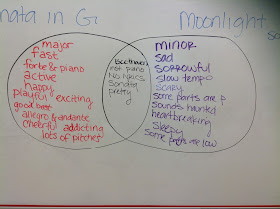 nata in G
Moonlight
major
fast
forte & piano
active
happy
playful exciting
good beat
allegro & andante
cheerful addicting
lots of pitches
Beethoven
for piano
No lyrics
Sonata
pretty
minor
sad
sorrowful
slow tempo
scary
some parts are p
sounds haunted
heartbreaking
sleepy
some parts are low